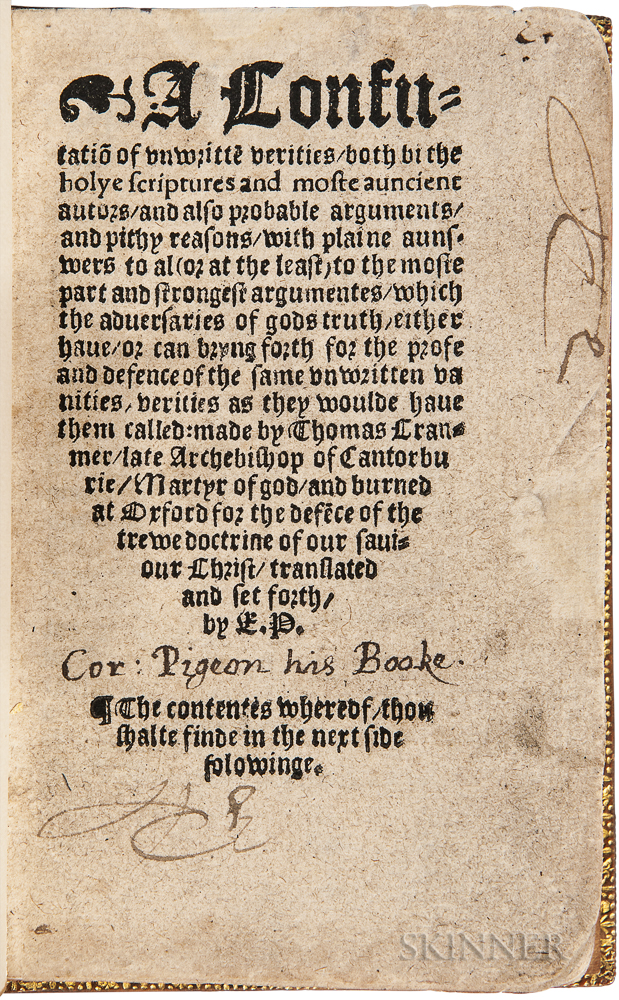 A Confu⸗
tatiō of vnwrittē verities/both bi the
holye scriptures and moste auncient
autors/and also probable arguments/
and pithy reasons/with plaine auns⸗
wers to al(or at the least)to the moste
part and strongest argumentes/which
the aduersaries of gods truth/either
haue/or can bryng forth for the profe
and defence of the same vnwritten va
nities, verities as they woulde haue
them called:made by Thomas Cran⸗
mer/late Archebishop of Cantorbu
rie/Martyr of god/and burned
at Oxford for the defēce of the
trewe doctrine of our saui⸗
our Christ/translated
and set forth/
by E.P.
Cor: Pigeon his Booke.
¶The contentes whereof/thou
shalte finde in the next side
folowinge.
SKINNER